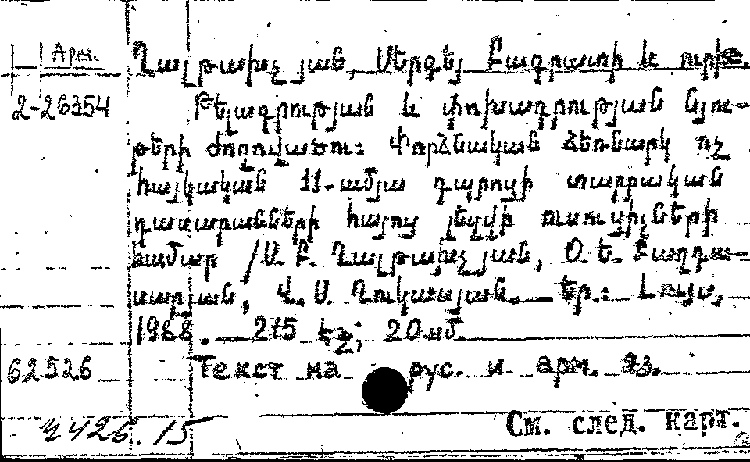 Арм.
Ղալթախչյան, Սերգեյ Բագրատի և ուրիշ.
2-26354
Թելադրության և փոխադրության նյու-
թերի ժողովածու: Փորձնական ձեռնարկ ոչ
հայկական 11-ամյա դպրոցի տարրական
դասարանների հայոց լեզվի ուսուցիչների
համար /Ս. Բ. Ղալթախչյան, Օ. Ե. Բաղդա-
սարյան, Վ. Ս. Ղուկասյան. — Եր.: Լույս,
1988. — 215 էջ; 20 սմ.
62526 Текст на рус. и арм. яз.
Ч426.15
См. след. карт.